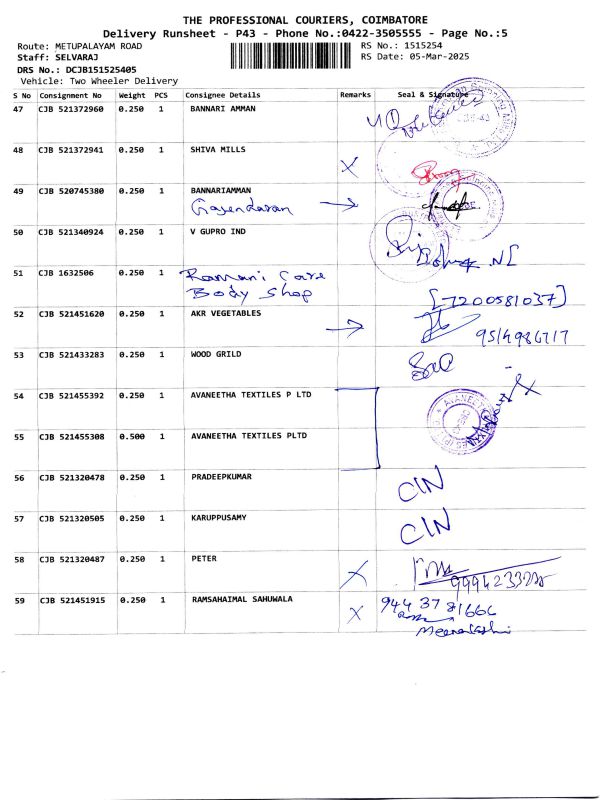 THE PROFESSIONAL COURIERS, COIMBATORE
Delivery Runsheet - P43 - Phone No.:0422-3505555 - Page No.:5
Route: METUPALAYAM ROAD RS No.: 1515254
Staff: SELVARAJ RS Date: 05-Mar-2025
DRS No.: DCJB151525405
Vehicle: Two Wheeler Delivery
S No Consignment No Weight PCS Consignee Details Remarks Seal & Signature
47 CJB 521372960 0.250 1 BANNARI AMMAN
48 CJB 521372941 0.250 1 SHIVA MILLS
49 CJB 520745380 0.250 1 BANNARIAMMAN
Gajendaran
50 CJB 521340924 0.250 1 V GUPRO IND
51 CJB 1632506 0.250 1 Ramani Care
Body Shop
[7200581037]
52 CJB 521451620 0.250 1 AKR VEGETABLES
53 CJB 521433283 0.250 1 WOOD GRILD
54 CJB 521455392 0.250 1 AVANEETHA TEXTILES P LTD
55 CJB 521455308 0.500 1 AVANEETHA TEXTILES PLTD
56 CJB 521320478 0.250 1 PRADEEPKUMAR CIN
57 CJB 521320505 0.250 1 KARUPPUSAMY CIN
58 CJB 521320487 0.250 1 PETER
59 CJB 521451915 0.250 1 RAMSAHAIMAL SAHUWALA 944 37 81666
Meenakshi